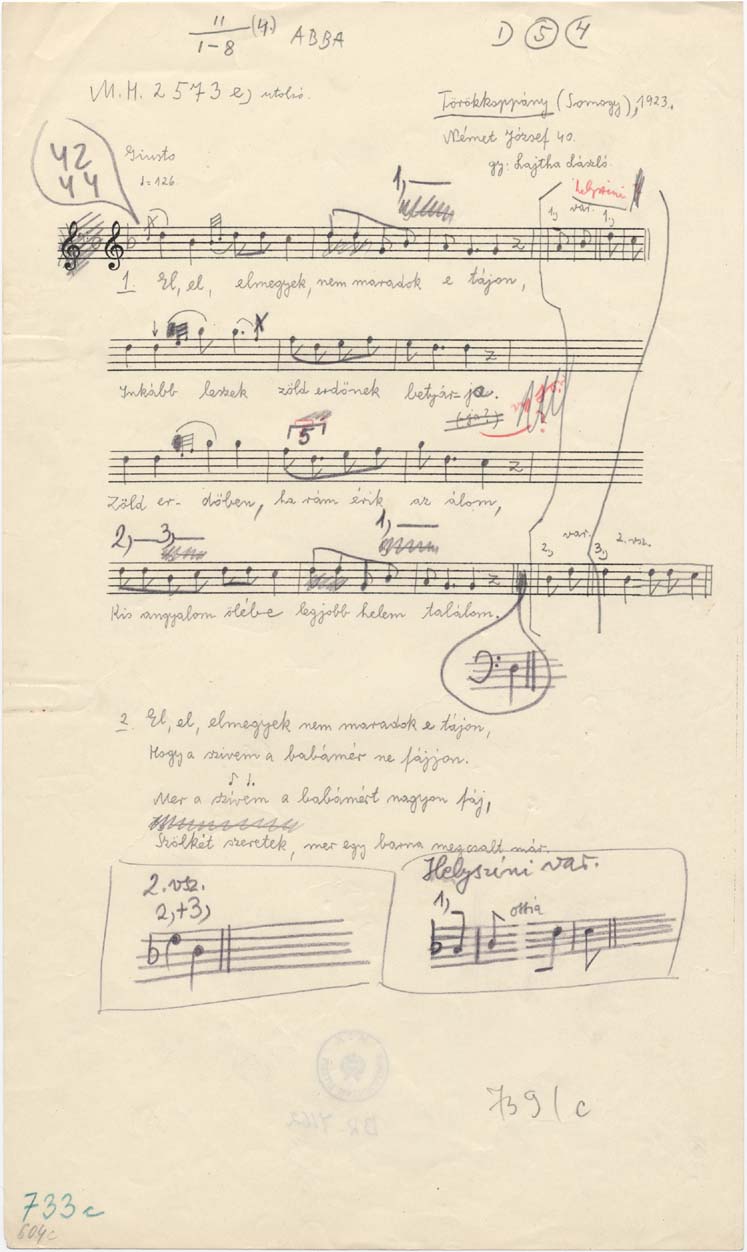 11
1-8 (4.) ABBA D 5 4
M.H. 2573 e) utolsó.
Törökkoppány (Somogy), 1923.
Német József 40.
gy: Lajtha László.
42
44
Giusto
♩=126
1,
helyszini
1, var. 1,
1. El, el, elmegyek, nem maradok e tájon,
Inkább leszek zöld erdőnek betyár-ja.
(-ja?)
5
Zöld er- dőben, ha rám érik az álom,
2, 3, 1,
2, var. 3, 2. vsz.
Kis angyalom ölébe legjobb helem találom.
2. El, el, elmegyek nem maradok e tájon,
Hogy a szivem a babámér ne fájjon.
Mer a szívem a babámért nagyon fáj,
Szőlkét szeretek, mer egy barna megcsalt már.
2. vsz.
2,+3,
Helyszíni var.
1, ossia
739/c
733c
604c